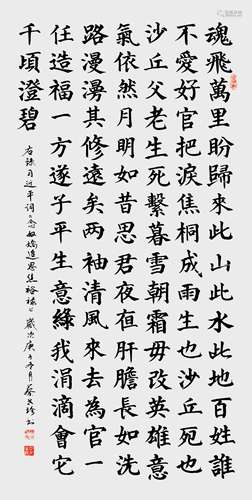 魂飛萬里盼歸來此山此水此地百姓誰
不愛好官把淚焦桐成雨生也沙丘死也
沙丘父老生死繫暮雪朝霜毋改英雄意
氣依然月明如昔思君夜夜肝膽長如洗
路漫漫其修遠矣兩袖清風來去為官一
任造福一方遂了平生意綠我涓滴會它
千頃澄碧
右錄習近平詞念奴嬌追思焦裕祿 歲次庚子